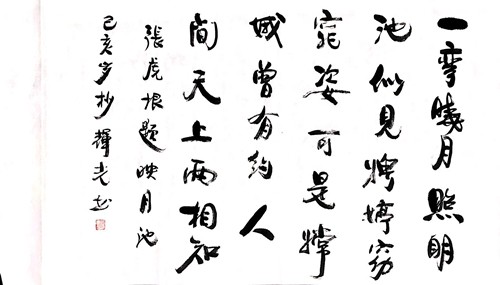 一彎曉月照明
池似見娉婷窈
窕姿可是嫦
娥曾有約人
間天上兩相知
張虎根題映月池
己亥冬杪輝光书